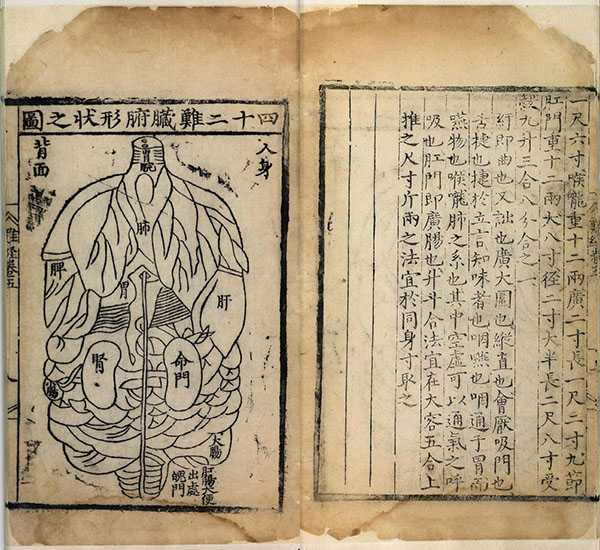 一尺六寸喉嚨重十二兩廣二寸長一尺二寸九節
肛門重十二兩大八寸径二寸大半長二尺八寸受
穀九升三合八分合之一
紆即曲也又詘也廣大圍也縱直也會厭吸門也
舌捷也捷於立言知味者也咽嚥也咽通于胃而
嚥物也喉嚨肺之系也其中空虛可以通氣之呼
吸也肛門即廣腸也升斗合法宜在大容五合上
推之尺寸斤兩之法宜於同身寸取之
四十二難臟腑形狀之圖
人身
背面
肺
脾
胃
肝
腎
命門
大腸
肛腸大便
出處
魄門
難經卷五